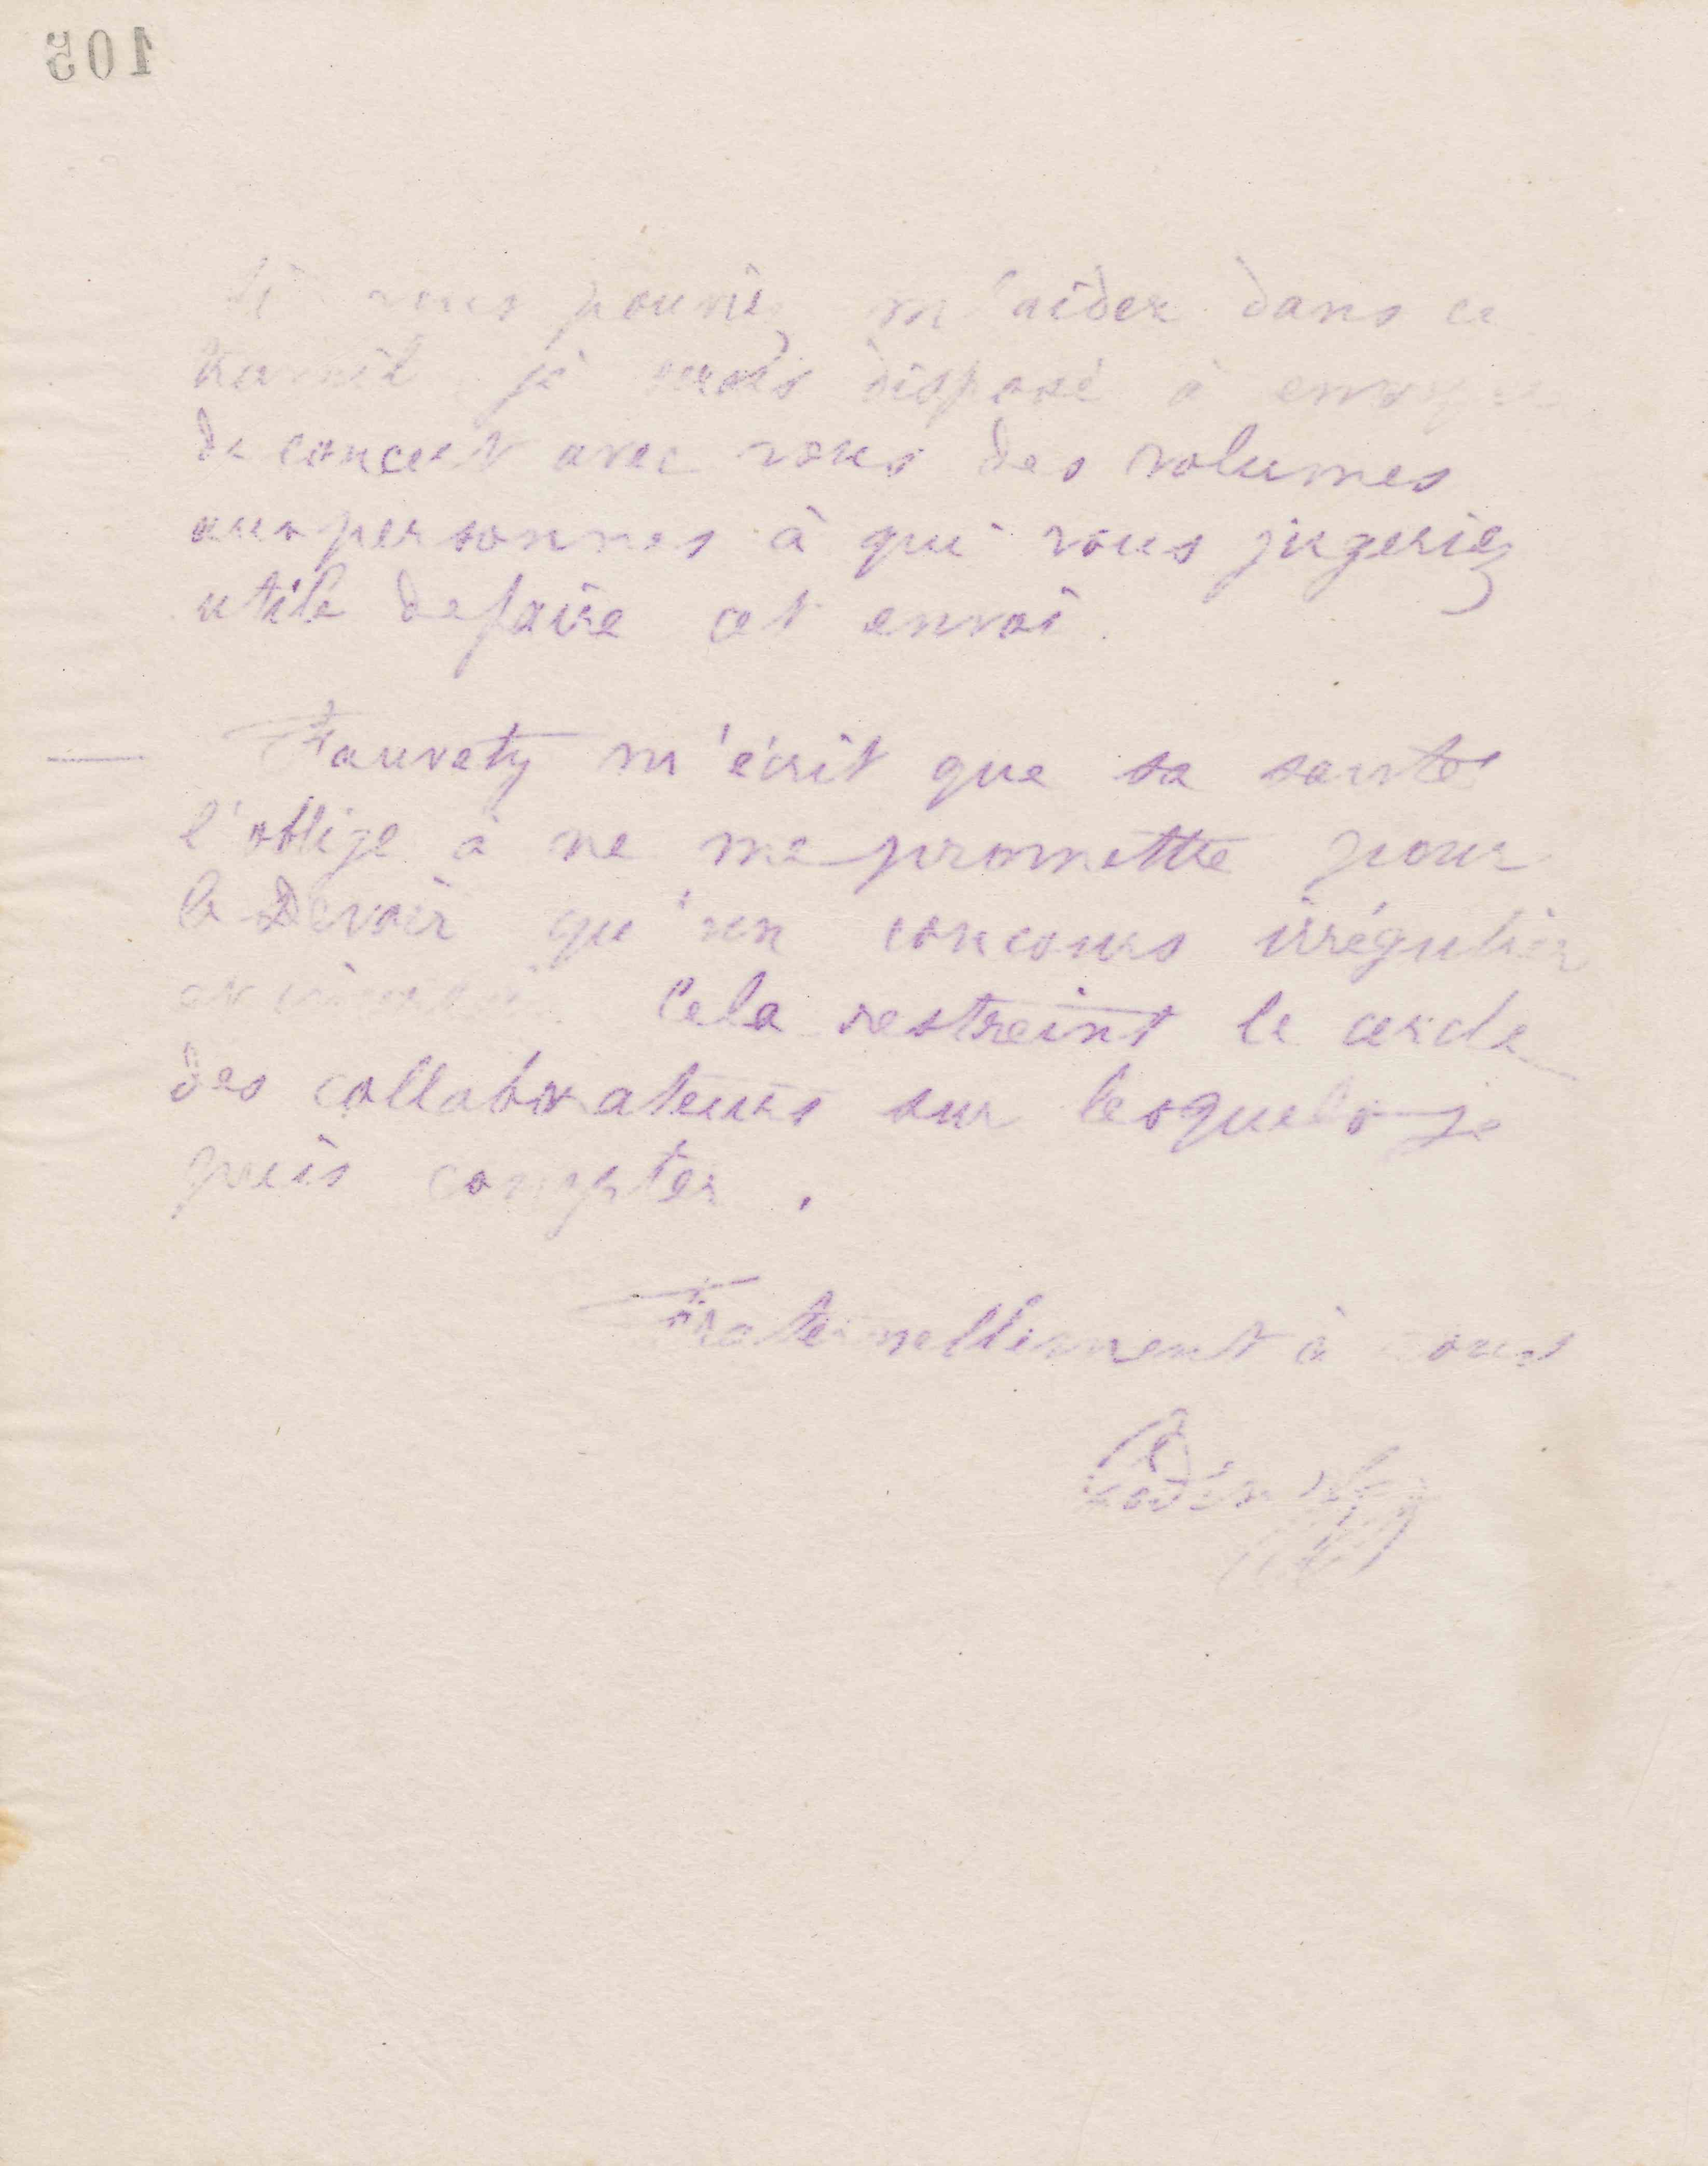 105
Si vous pouviez m'aider dans ce
travail je serais disposé à envoyer
de concert avec vous des volumes
aux personnes à qui vous jugeriez
utile de faire cet envoi.
Fauvety m'écrit que sa santé
l'oblige à ne me promettre pour
le Devoir qu'un concours irrégulier
et Cela restreint le cercle
des collaborateurs sur lesquels je
puis compter.
Fraternellement à vous
Godin